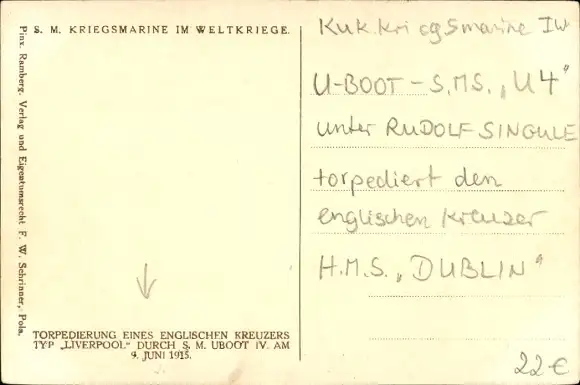 S. M. KRIEGSMARINE IM WELTKRIEGE.
Pinx. Ramberg. Verlag und Eigentumsrecht F. W. Schrinner, Pola.
TORPEDIERUNG EINES ENGLISCHEN KREUZERS
TYP „LIVERPOOL" DURCH S. M. UBOOT IV. AM
9. JUNI 1915.
KuK. Kriegsmarine IW
U-BOOT - S.M.S. „U4"
unter RUDOLF SINGULE
torpediert den
englischen Kreuzer
H.M.S. „DUBLIN"
22 €